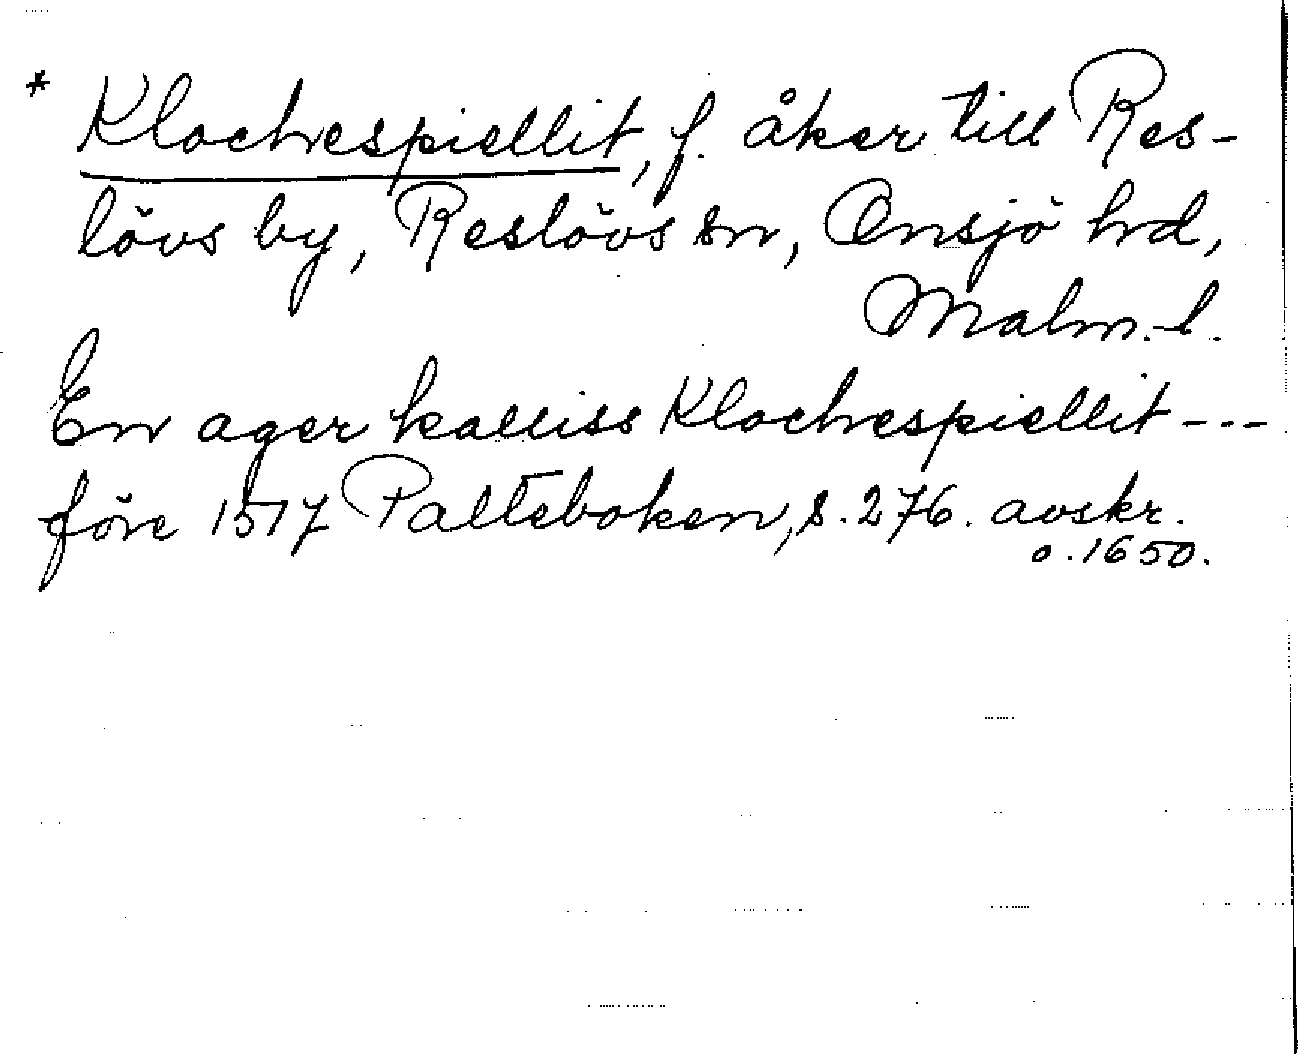 * Klochespiellit, f. åker till Res-
lövs by, Reslövs sn, Onsjö hd,
Malm.l.
En ager kalliss Klochespiellit ---
före 1517 Palteboken, s. 276. avskr.
o. 1650.